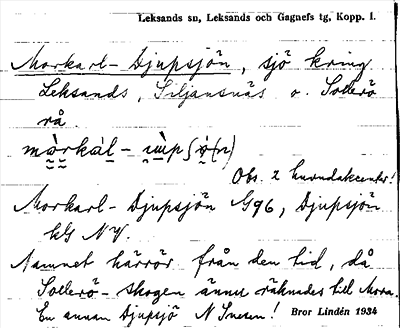 Leksands sn, Leksands och Gagnefs tg, Kopp. l.
Morkarl-Djupsjön, sjö kring
Leksands, Siljansnäs o. Sollerö
rå.
Obs. 2 huvudakcenter!
Morkarl-Djupsjön G96, Djupsjön
kG NV.
Namnet härrör från den tid, då
Sollerö-skogen ännu räknades till Mora.
En annan Djupsjö N Snesen! Bror Lindén 1934